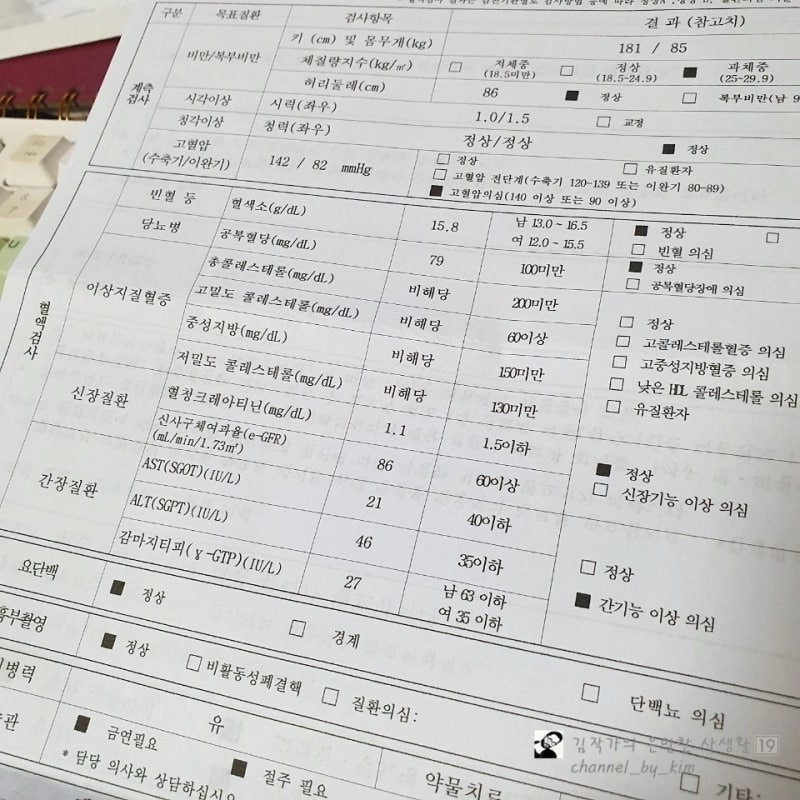 구분 목표질환 검사항목 결 과 (참고치)
계측검사 비만/복부비만 키 (cm) 및 몸무게(kg) 181 / 85
체질량지수(kg/㎡) □ 저체중 (18.5미만) □ 정상 (18.5~24.9) ■ 과체중 (25~29.9)
허리둘레(cm) 86 ■ 정상 □ 복부비만(남 9
시각이상 시력(좌우) 1.0/1.5 □ 교정
청각이상 청력(좌우) 정상/정상 ■ 정상
고혈압 (수축기/이완기) 142 / 82 mmHg □ 정상 □ 유질환자
□ 고혈압 전단계(수축기 120-139 또는 이완기 80-89)
■ 고혈압의심(140 이상 또는 90 이상)
혈액검사 빈혈 등 혈색소(g/dL) 15.8 남 13.0 ~ 16.5 ■ 정상 □
여 12.0 ~ 15.5 □ 빈혈 의심
당뇨병 공복혈당(mg/dL) 79 100미만 ■ 정상
□ 공복혈당장애 의심
이상지질혈증 총콜레스테롤(mg/dL) 비해당 200미만 □ 정상
고밀도 콜레스테롤(mg/dL) 비해당 60이상 □ 고콜레스테롤혈증 의심
중성지방(mg/dL) 비해당 150미만 □ 고중성지방혈증 의심
저밀도 콜레스테롤(mg/dL) 비해당 130미만 □ 낮은 HDL 콜레스테롤 의심
□ 유질환자
신장질환 혈청크레아티닌(mg/dL) 1.1 1.5이하 ■ 정상
신사구체여과율(e-GFR) (mL/min/1.73㎡) 86 60이상 □ 신장기능 이상 의심
간장질환 AST(SGOT)(IU/L) 21 40이하
ALT(SGPT)(IU/L) 46 35이하 □ 정상
감마지티피(γ-GTP)(IU/L) 27 남 63 이하 ■ 간기능 이상 의심
여 35 이하
요단백 ■ 정상 □ 경계 □ 단백뇨 의심
흉부촬영 ■ 정상 □ 비활동성폐결핵 □ 질환의심: □ 기타:
병력 유 약물치료
■ 금연필요 ■ 절주 필요
* 담당 의사와 상담하십시오
김작가의 은밀한 사생활 19
channel_by_kim